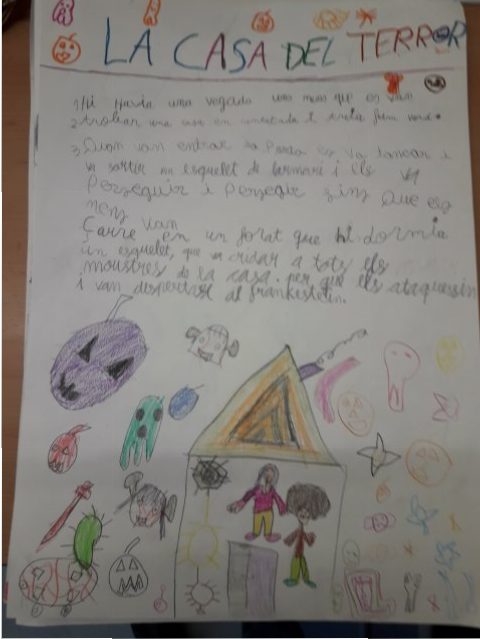 LA CASA DEL TERROR
1) Hi havia una vegada uns nens que es van
2 trobar una casa en cantada i treia fum verd.
3) Quan van entrar la porta es va tancar i
va sortir un esquelet de larmari i els va
Perseguir i Persegir fins que els
nens van
Caure en un forat que hi dormia
un esquelet, que va cridar a tots els
moustres de la casa. per que els ataquessin
i van despertar al frankistein.